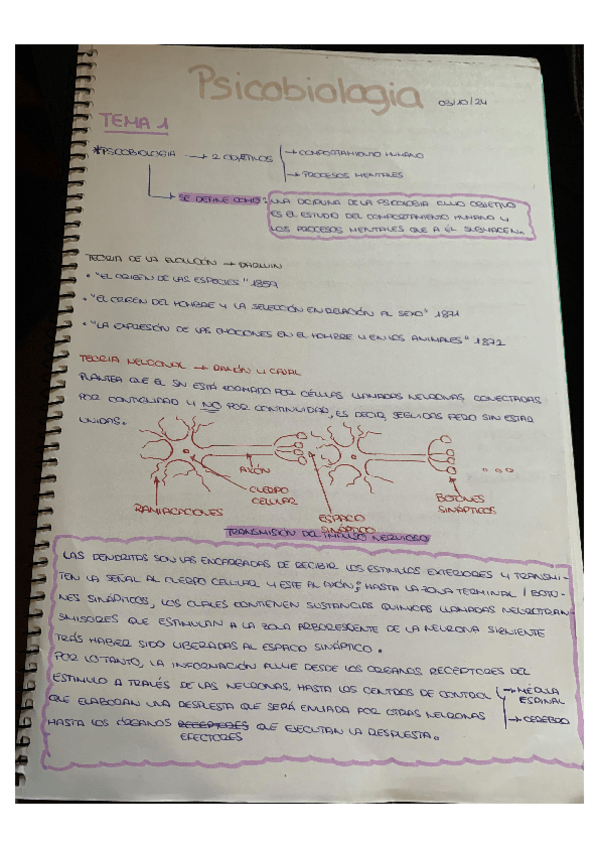 Psicobiologia 03/10/24
TEMA 1
*PSICOBIOLOGIA → 2 OBJETIVOS → COMPORTAMIENTO HUMANO
→ PROCESOS MENTALES
→ SE DEFINE COMO: UNA DISCIPLINA DE LA PSICOLOGIA CUYO OBJETIVO
ES EL ESTUDIO DEL COMPORTAMIENTO HUMANO Y
LOS PROCESOS MENTALES QUE A ÉL SUBYACEN.
TEORIA DE LA EVOLUCIÓN → DARWIN
• "EL ORIGEN DE LAS ESPECIES" 1859
• "EL ORIGEN DEL HOMBRE Y LA SELECCIÓN EN RELACIÓN AL SEXO" 1871
• "LA EXPRESIÓN DE LAS EMOCIONES EN EL HOMBRE Y EN LOS ANIMALES" 1872
TEORIA NEURONAL → RAMÓN Y CAJAL
PLANTEA QUE EL SN ESTÁ FORMADO POR CÉLULAS LLAMADAS NEURONAS CONECTADAS
POR CONTIGUIDAD Y NO POR CONTINUIDAD, ES DECIR, SEGUIDAS PERO SIN ESTAR
UNIDAS.
AXÓN
CUERPO
CELULAR
RAMIFICACIONES
ESPACIO
SINÁPTICO
BOTONES
SINÁPTICOS
TRANSMISIÓN DEL IMPULSO NERVIOSO
LAS DENDRITAS SON LAS ENCARGADAS DE RECIBIR LOS ESTIMULOS EXTERIORES Y TRANSMI-
TEN LA SEÑAL AL CUERPO CELULAR Y ESTE AL AXÓN; HASTA LA ZONA TERMINAL / BOTO-
NES SINÁPTICOS, LOS CUALES CONTIENEN SUSTANCIAS QUIMICAS LLAMADAS NEUROTRAN-
SMISORES QUE ESTIMULAN A LA ZONA ARBORESCENTE DE LA NEURONA SIGUIENTE
TRÁS HABER SIDO LIBERADAS AL ESPACIO SINÁPTICO.
POR LO TANTO, LA INFORMACIÓN FLUYE DESDE LOS ORGANOS RECEPTORES DEL
ESTIMULO A TRAVÉS DE LAS NEURONAS, HASTA LOS CENTROS DE CONTROL → MÉDULA
ESPINAL
QUE ELABORAN UNA RESPUESTA QUE SERÁ ENVIADA POR OTRAS NEURONAS → CEREBRO
HASTA LOS ÓRGANOS RECEPTORES QUE EJECUTAN LA RESPUESTA.
EFECTORES